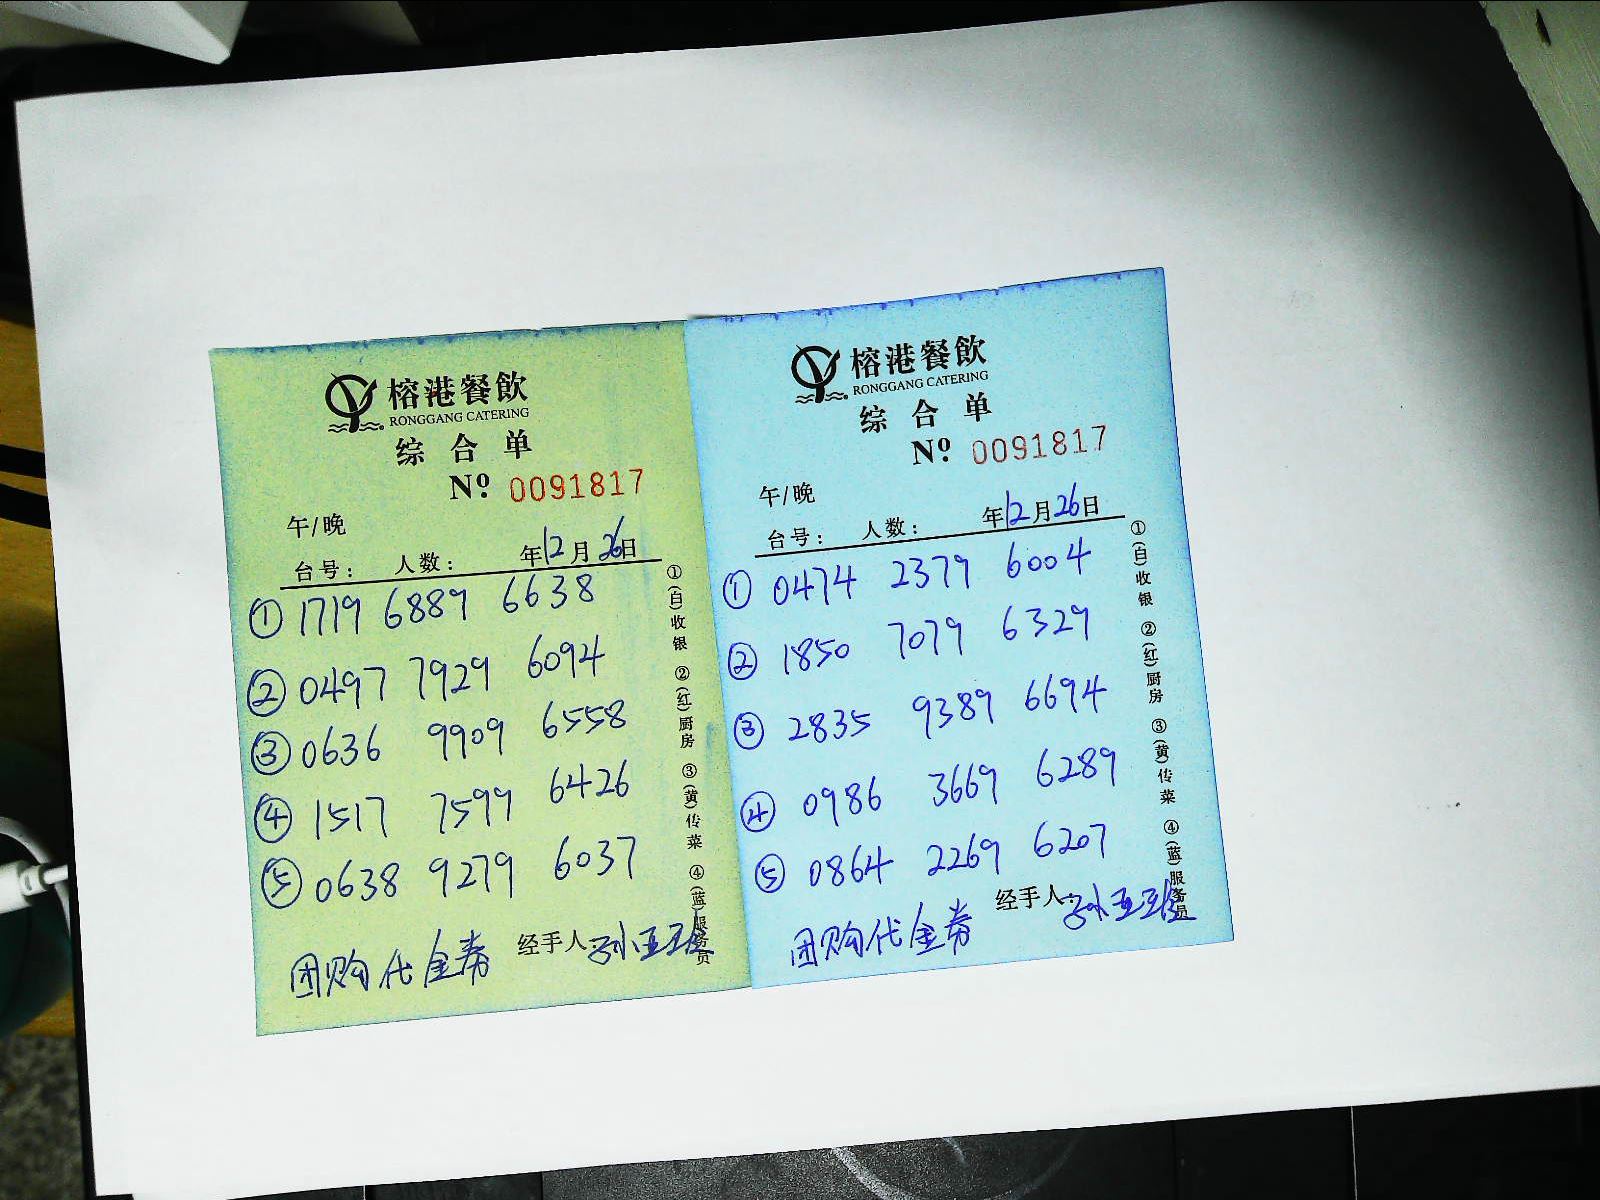 榕港餐飲
RONGGANG CATERING
综合单
Nº 0091817
午/晚
台号： 人数： 年12月26日
① 1719 6889 6638
② 0497 7929 6094
③ 0636 9909 6558
④ 1517 7599 6426
⑤ 0638 9279 6037
团购代金券 经手人:
①(白)收银 ②(红)厨房 ③(黄)传菜 ④(蓝)服务员
榕港餐飲
RONGGANG CATERING
综合单
Nº 0091817
午/晚
台号： 人数： 年12月26日
① 0474 2379 6004
② 1850 7079 6329
③ 2835 9389 6694
④ 0986 3669 6289
⑤ 0864 2269 6207
经手人:
团购代金券
①(白)收银 ②(红)厨房 ③(黄)传菜 ④(蓝)服务员